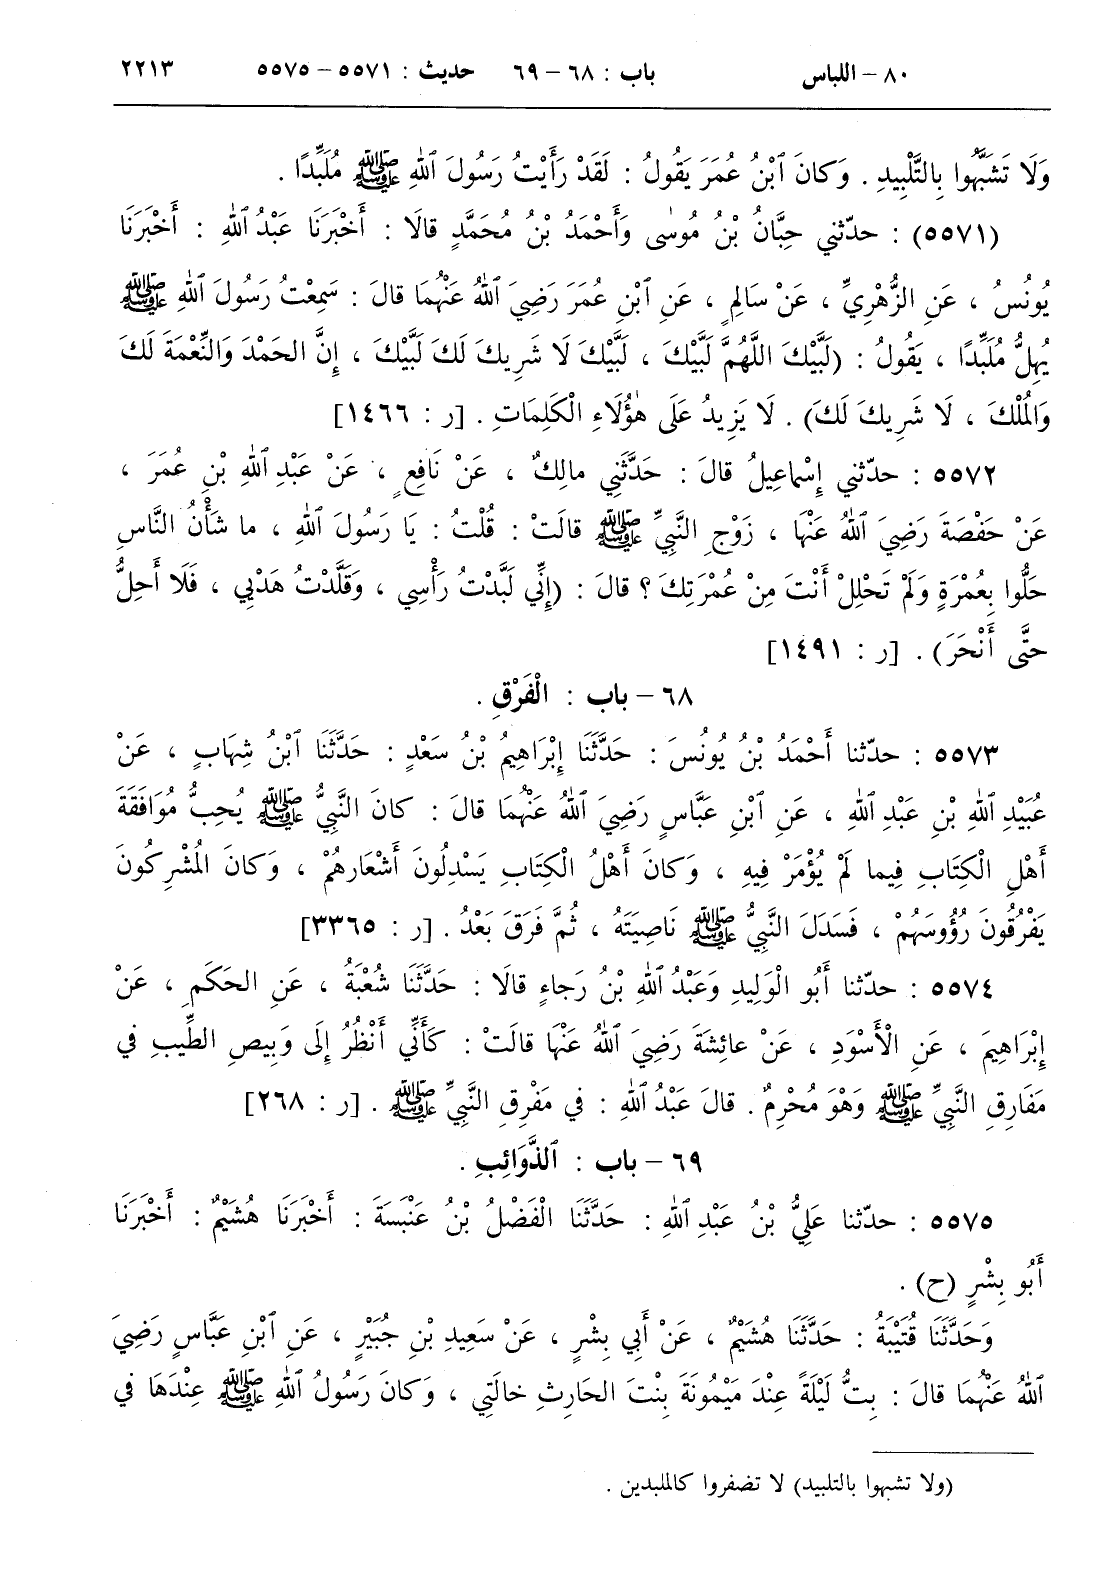 ٨٠ – اللباس باب : ٦٨ – ٦٩ حديث : ٥٥٧١ – ٥٥٧٥ ٢٢١٣
وَلَا تَشَبَّهُوا بِالتَّلْبِيدِ . وَكانَ ٱبْنُ عُمَرَ يَقُولُ : لَقَدْ رَأَيْتُ رَسُولَ ٱللهِ ﷺ مُلَبِّدًا .
(٥٥٧١) : حدّثني حِبَّانُ بْنُ مُوسٰى وَأَحْمَدُ بْنُ مُحَمَّدٍ قالَا : أَخْبَرَنَا عَبْدُ ٱللهِ : أَخْبَرَنَا
يُونُسُ ، عَنِ الزُّهْرِيِّ ، عَنْ سَالِمٍ ، عَنِ ٱبْنِ عُمَرَ رَضِيَ ٱللهُ عَنْهُمَا قالَ : سَمِعْتُ رَسُولَ ٱللهِ ﷺ
يُهِلُّ مُلَبِّدًا ، يَقُولُ : (لَبَّيْكَ اللَّهُمَّ لَبَّيْكَ ، لَبَّيْكَ لَا شَرِيكَ لَكَ لَبَّيْكَ ، إِنَّ الحَمْدَ وَالنِّعْمَةَ لَكَ
وَالمُلْكَ ، لَا شَرِيكَ لَكَ) . لَا يَزِيدُ عَلَى هٰؤُلَاءِ الْكَلِمَاتِ . [ر : ١٤٦٦]
٥٥٧٢ : حدّثني إِسْماعِيلُ قالَ : حَدَّثَنِي مالِكٌ ، عَنْ نَافِعٍ ، عَنْ عَبْدِ ٱللهِ بْنِ عُمَرَ ،
عَنْ حَفْصَةَ رَضِيَ ٱللهُ عَنْهَا ، زَوْجِ النَّبِيِّ ﷺ قالَتْ : قُلْتُ : يَا رَسُولَ ٱللهِ ، ما شَأْنُ النَّاسِ
حَلُّوا بِعُمْرَةٍ وَلَمْ تَحْلِلْ أَنْتَ مِنْ عُمْرَتِكَ ؟ قالَ : (إِنِّي لَبَّدْتُ رَأْسِي ، وَقَلَّدْتُ هَدْيِي ، فَلَا أَحِلُّ
حتَّى أَنْحَرَ) . [ر : ١٤٩١]
٦٨ – باب : الْفَرْقِ .
٥٥٧٣ : حدّثنا أَحْمَدُ بْنُ يُونُسَ : حَدَّثَنَا إِبْرَاهِيمُ بْنُ سَعْدٍ : حَدَّثَنَا ٱبْنُ شِهَابٍ ، عَنْ
عُبَيْدِ ٱللهِ بْنِ عَبْدِ ٱللهِ ، عَنِ ٱبْنِ عَبَّاسٍ رَضِيَ ٱللهُ عَنْهُمَا قالَ : كانَ النَّبِيُّ ﷺ يُحِبُّ مُوَافَقَةَ
أَهْلِ الْكِتَابِ فِيما لَمْ يُؤْمَرْ فِيهِ ، وَكانَ أَهْلُ الْكِتَابِ يَسْدِلُونَ أَشْعَارهُمْ ، وَكانَ المُشْرِكُونَ
يَفْرُقُونَ رُؤُوسَهُمْ ، فَسَدَلَ النَّبِيُّ ﷺ نَاصِيَتَهُ ، ثُمَّ فَرَقَ بَعْدُ . [ر : ٣٣٦٥]
٥٥٧٤ : حدّثنا أَبُو الْوَلِيدِ وَعَبْدُ ٱللهِ بْنُ رَجاءٍ قالَا : حَدَّثَنَا شُعْبَةُ ، عَنِ الحَكَمِ ، عَنْ
إِبْرَاهِيمَ ، عَنِ الْأَسْوَدِ ، عَنْ عائِشَةَ رَضِيَ ٱللهُ عَنْهَا قالَتْ : كَأَنِّي أَنْظُرُ إِلَى وَبِيصِ الطِّيبِ في
مَفَارِقِ النَّبِيِّ ﷺ وَهْوَ مُحْرِمٌ . قالَ عَبْدُ ٱللهِ : في مَفْرِقِ النَّبِيِّ ﷺ . [ر : ٢٦٨]
٦٩ – باب : ٱلذَّوَائِبِ .
٥٥٧٥ : حدّثنا عَلِيُّ بْنُ عَبْدِ ٱللهِ : حَدَّثَنَا الْفَضْلُ بْنُ عَنْبَسَةَ : أَخْبَرَنَا هُشَيْمٌ : أَخْبَرَنَا
أَبُو بِشْرٍ (ح) .
وَحَدَّثَنَا قُتَيْبَةُ : حَدَّثَنَا هُشَيْمٌ ، عَنْ أَبِي بِشْرٍ ، عَنْ سَعِيدِ بْنِ جُبَيْرٍ ، عَنِ ٱبْنِ عَبَّاسٍ رَضِيَ
ٱللهُ عَنْهُمَا قالَ : بِتُّ لَيْلَةً عِنْدَ مَيْمُونَةَ بِنْتَ الحَارِثِ خالَتِي ، وَكانَ رَسُولُ ٱللهِ ﷺ عِنْدَهَا في
(ولا تشبهوا بالتلبيد) لا تضفروا كالملبدين .